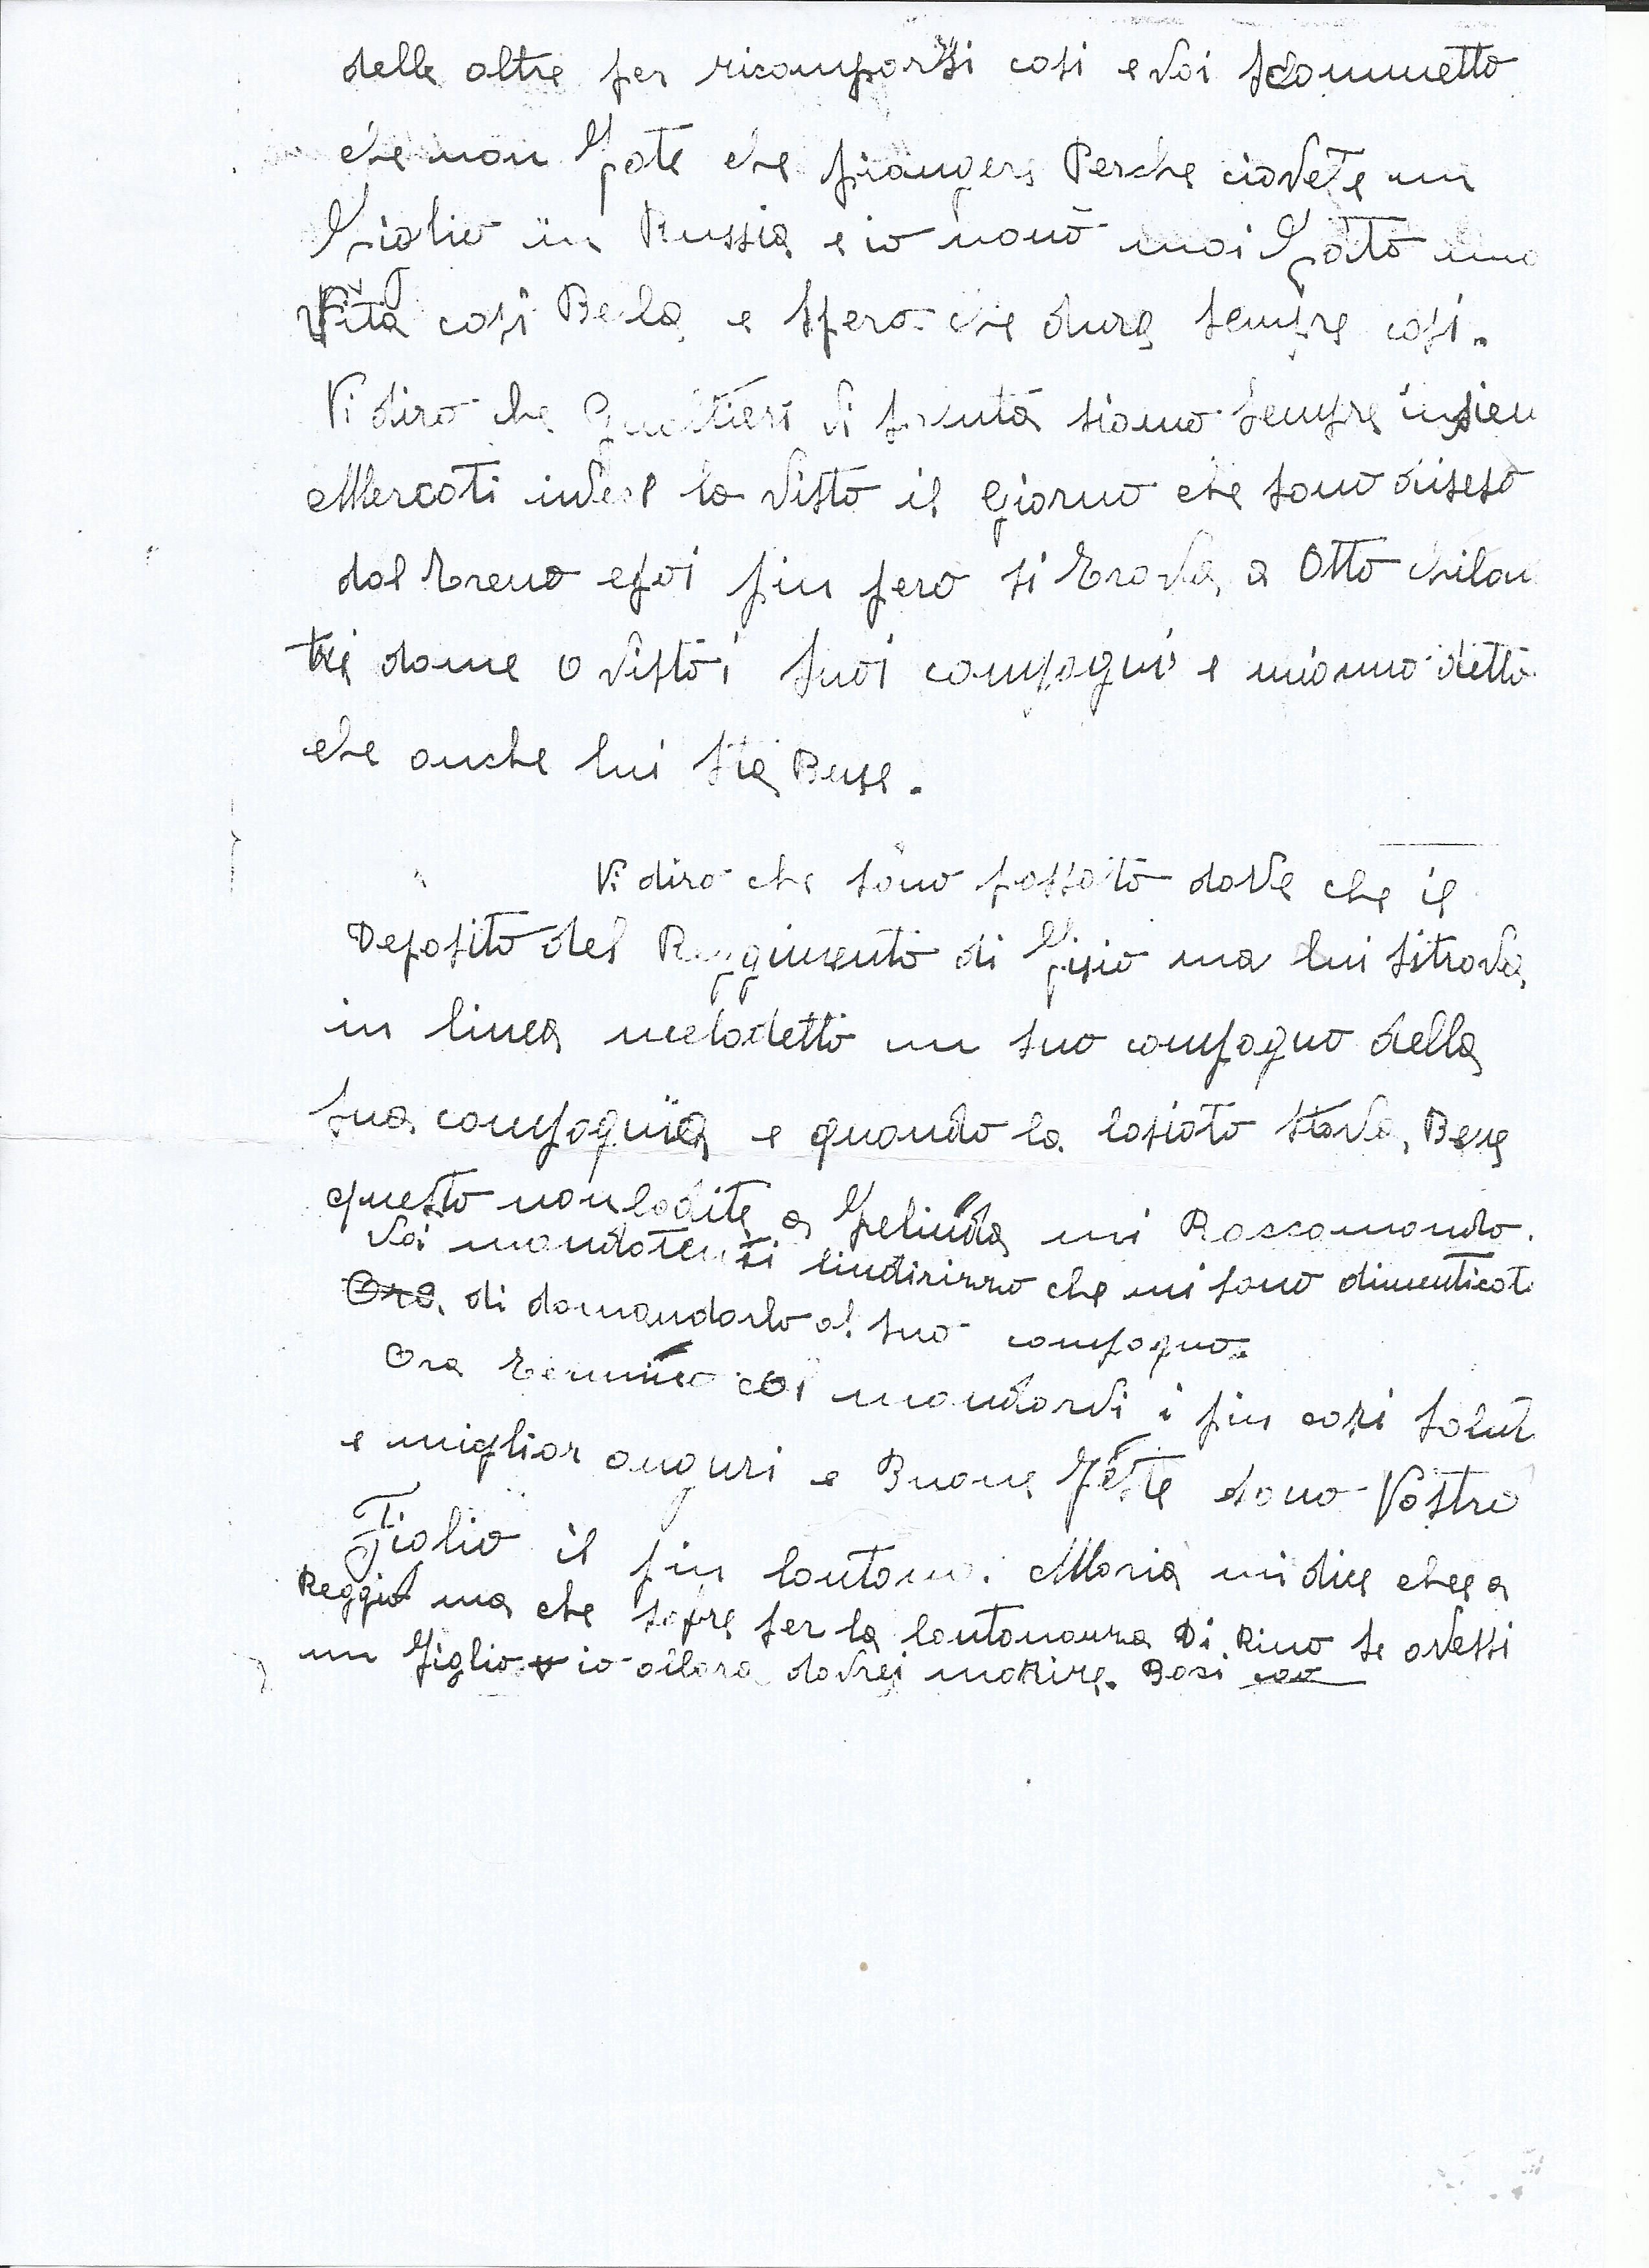 delle altre per ricomporsi cosi e voi scommetto
che non fate che piangere Perche ciavete un
figlio in Russia e io nonò mai fatto una
Vita cosi Bela e spero che dura sempre cosi.
Vi diro che Gualtieri di sempre insiem
Mercati invece lo visto il Giorno che sono disceso
dal treno epoi piu pero si trova a Otto chilom
tri dame o visto i suoi compagni e mianno detto
che anche lui sta Bene.
Vi diro che sono passato dove che il
Deposito del Reggimento di ma lui sitrova
in linea melodetto un suo compagno della
sua compagnia e quando lo lasiato stava Bene
questo nonlodite a Gelinda mi Raccomando.
Voi mandatemi lindirizzo che mi sono dimenticat
Ora di domandarlo al suo compagno.
Ora termino col mandarvi i piu cari salut
e miglior auguri e Buone feste dano Vostro
Figlio il piu lontano. Maria mi dice che a
Reggio ma che sofre per la lontananza Di Rino se avessi
un figlio io allora dovrei morire. Baci